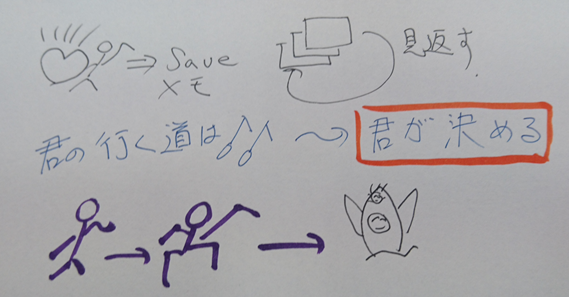 Save 見返す.
メモ
君の行く道は♪♪ 〜→ 君が決める